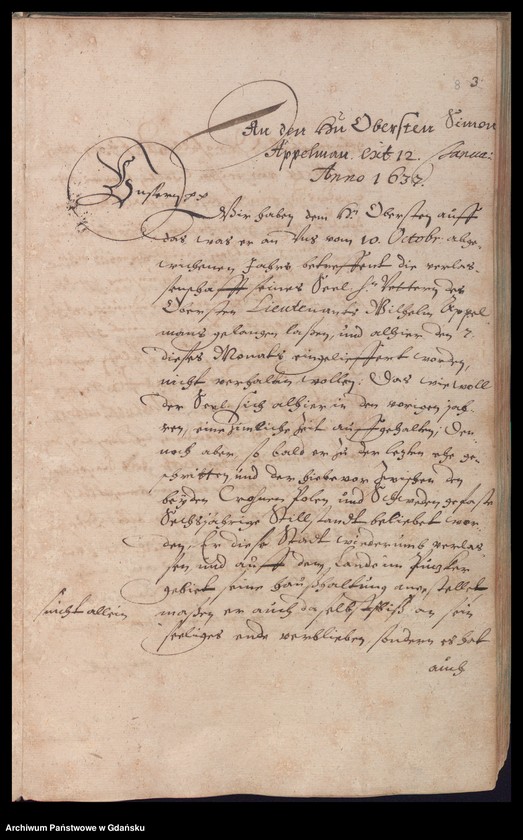 8 3.
An den Hn Obersten Simon
Appelman. exit 12. Janua:
Anno 1637.
Unsern
Wir haben dem Hn Obersten auff
das was er an Uns vom 10. Octobr. abge-
wichenen Jahrs betreffent die verlas-
senschafft seines Seel. Hn Vettern des
Obersten Lieutenants Wilhelm Appel
mans gelangen laßen, und alhier den 7.
dieses Monats eingelieffert worden,
nicht verhalten wollen. Das wiewoll
der Seel. sich alhier in den vorigen jah-
ren, eine zimliche zeit auffgehalten, Den
noch aber, so bald er zu der letzten ehe ge-
schritten, und der hiebevor zwischen den
beyden Crohnen Polen und Schweden gefaste
Sechsjährige Stillstandt beliebet wor-
den, Er diese Stadt wiederumb verlas-
sen, und auff dem Lande im
gebiet seine haußhaltung angestellet
nicht allein
maßen er auch daselbst biß an sein
seeliges ende verblieben, sondern es hat
auch
Archiwum Państwowe w Gdańsku